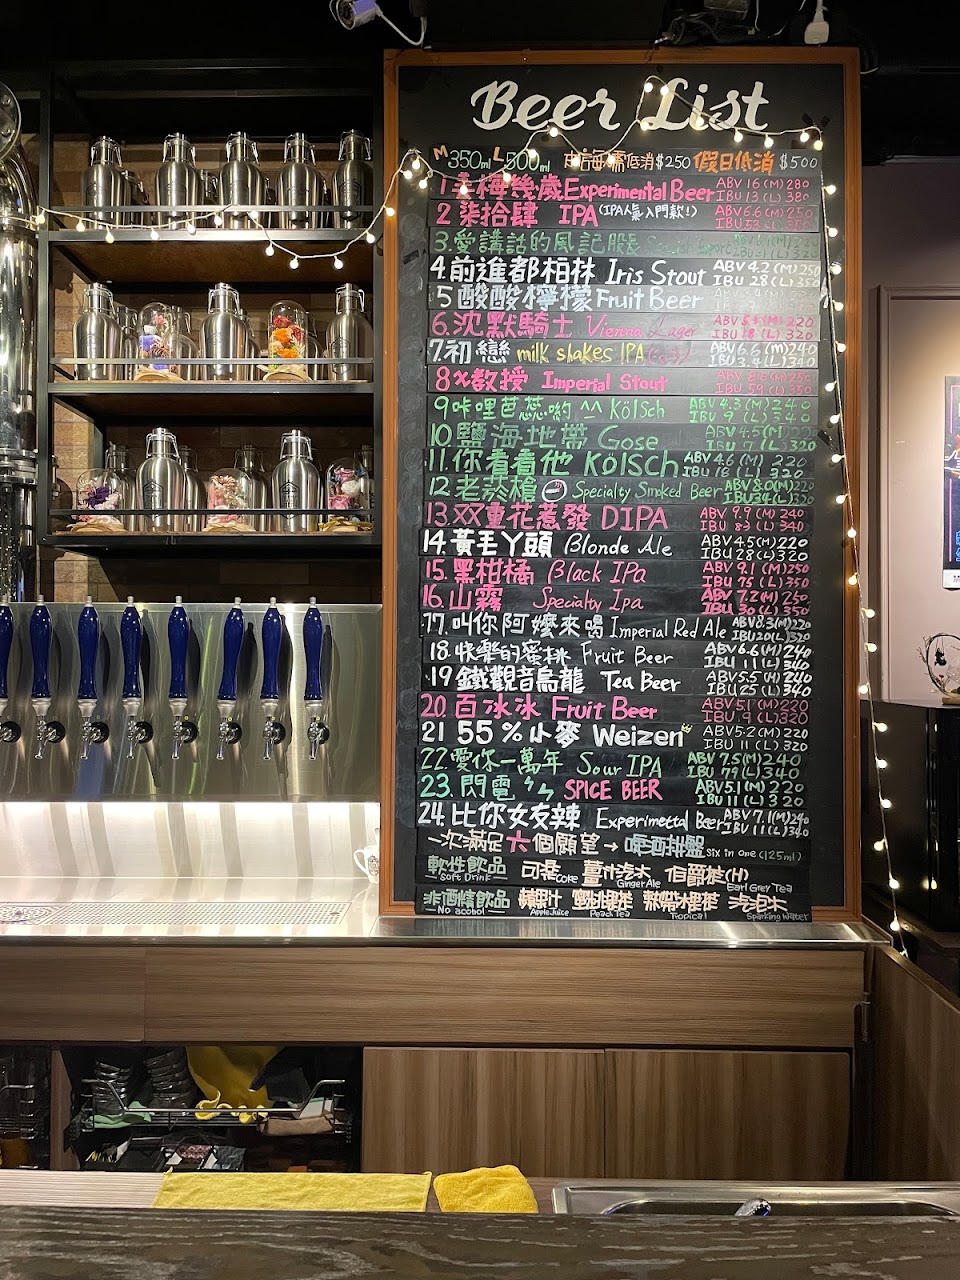 Beer List
M 350ml L 500ml 內用每人需低消$250 假日低消 $500
1 青梅幾歲 Experimental Beer ABV 16 (M) 280 IBU 13 (L) 380
2 柒拾肆 IPA (IPA人氣入門款!) ABV 6.6 (M) 250
3.愛講話的風記股長
4.前進都柏林 Iris Stout ABV 4.2 (M) 250 IBU 28 (L) 350
5 酸酸檸檬 Fruit Beer
6.沈默騎士 Vienna Lager (M) 220 IBU 18 (L) 320
7.初戀 milk shakes IPA ABV 6.5 (M) 240 (L) 340
8 X教授 Imperial Stout (M) 250 IBU 59 (L) 350
9 咔哩芭蕊喲 ^^ Kölsch ABV 4.3 (M) 240 IBU 9 (L) 340
10.鹽海地帶 Gose ABV 4.5 (M) 220 IBU 7 (L) 320
11.你看看他 Kölsch ABV 4.6 (M) 220 IBU 18 (L) 320
12.老菸槍 Specialty Smoked Beer ABV 8.0 (M) 220 IBU 34 (L) 320
13.双重花惹發 DIPA ABV 9.9 (M) 240 IBU 83 (L) 340
14.黃毛丫頭 Blonde Ale ABV 4.5 (M) 220 IBU 28 (L) 320
15.黑柑橘 Black IPa ABV 9.1 (M) 250 IBU 75 (L) 350
16.山霧 Specialty Ipa ABV 7.2 (M) 250 IBU 30 (L) 350
17.叫你阿嬤來喝 Imperial Red Ale ABV 8.3 (M) 220 IBU 20 (L) 320
18.快樂的蜜桃 Fruit Beer ABV 6.6 (M) 240 IBU 11 (L) 340
19.鐵觀音烏龍 Tea Beer ABV 5.5 (M) 240 IBU 25 (L) 340
20.百冰冰 Fruit Beer ABV 5.1 (M) 220 IBU 9 (L) 320
21 55%小麥 Weizen ABV 5.2 (M) 220 IBU 11 (L) 320
22.愛你一萬年 Sour IPA ABV 7.5 (M) 240 IBU 79 (L) 340
23.閃電ㄅㄅ SPICE BEER ABV 5.1 (M) 220 IBU 11 (L) 320
24.比你女友辣 Experimettal Beer ABV 7.1 (M) 240 IBU 11 (L) 340
一次滿足六個願望→啤酒拼盤 six in one (125ml)
軟性飲品 可樂 薑汁汽水 伯爵茶(H)
Soft Drink Coke Ginger Ale Earl Grey Tea
非酒精飲品 蘋果汁 蜜桃果茶 熱帶水果茶 汽泡水
No acohol Apple Juice Peach Tea Tropical Sparking Water